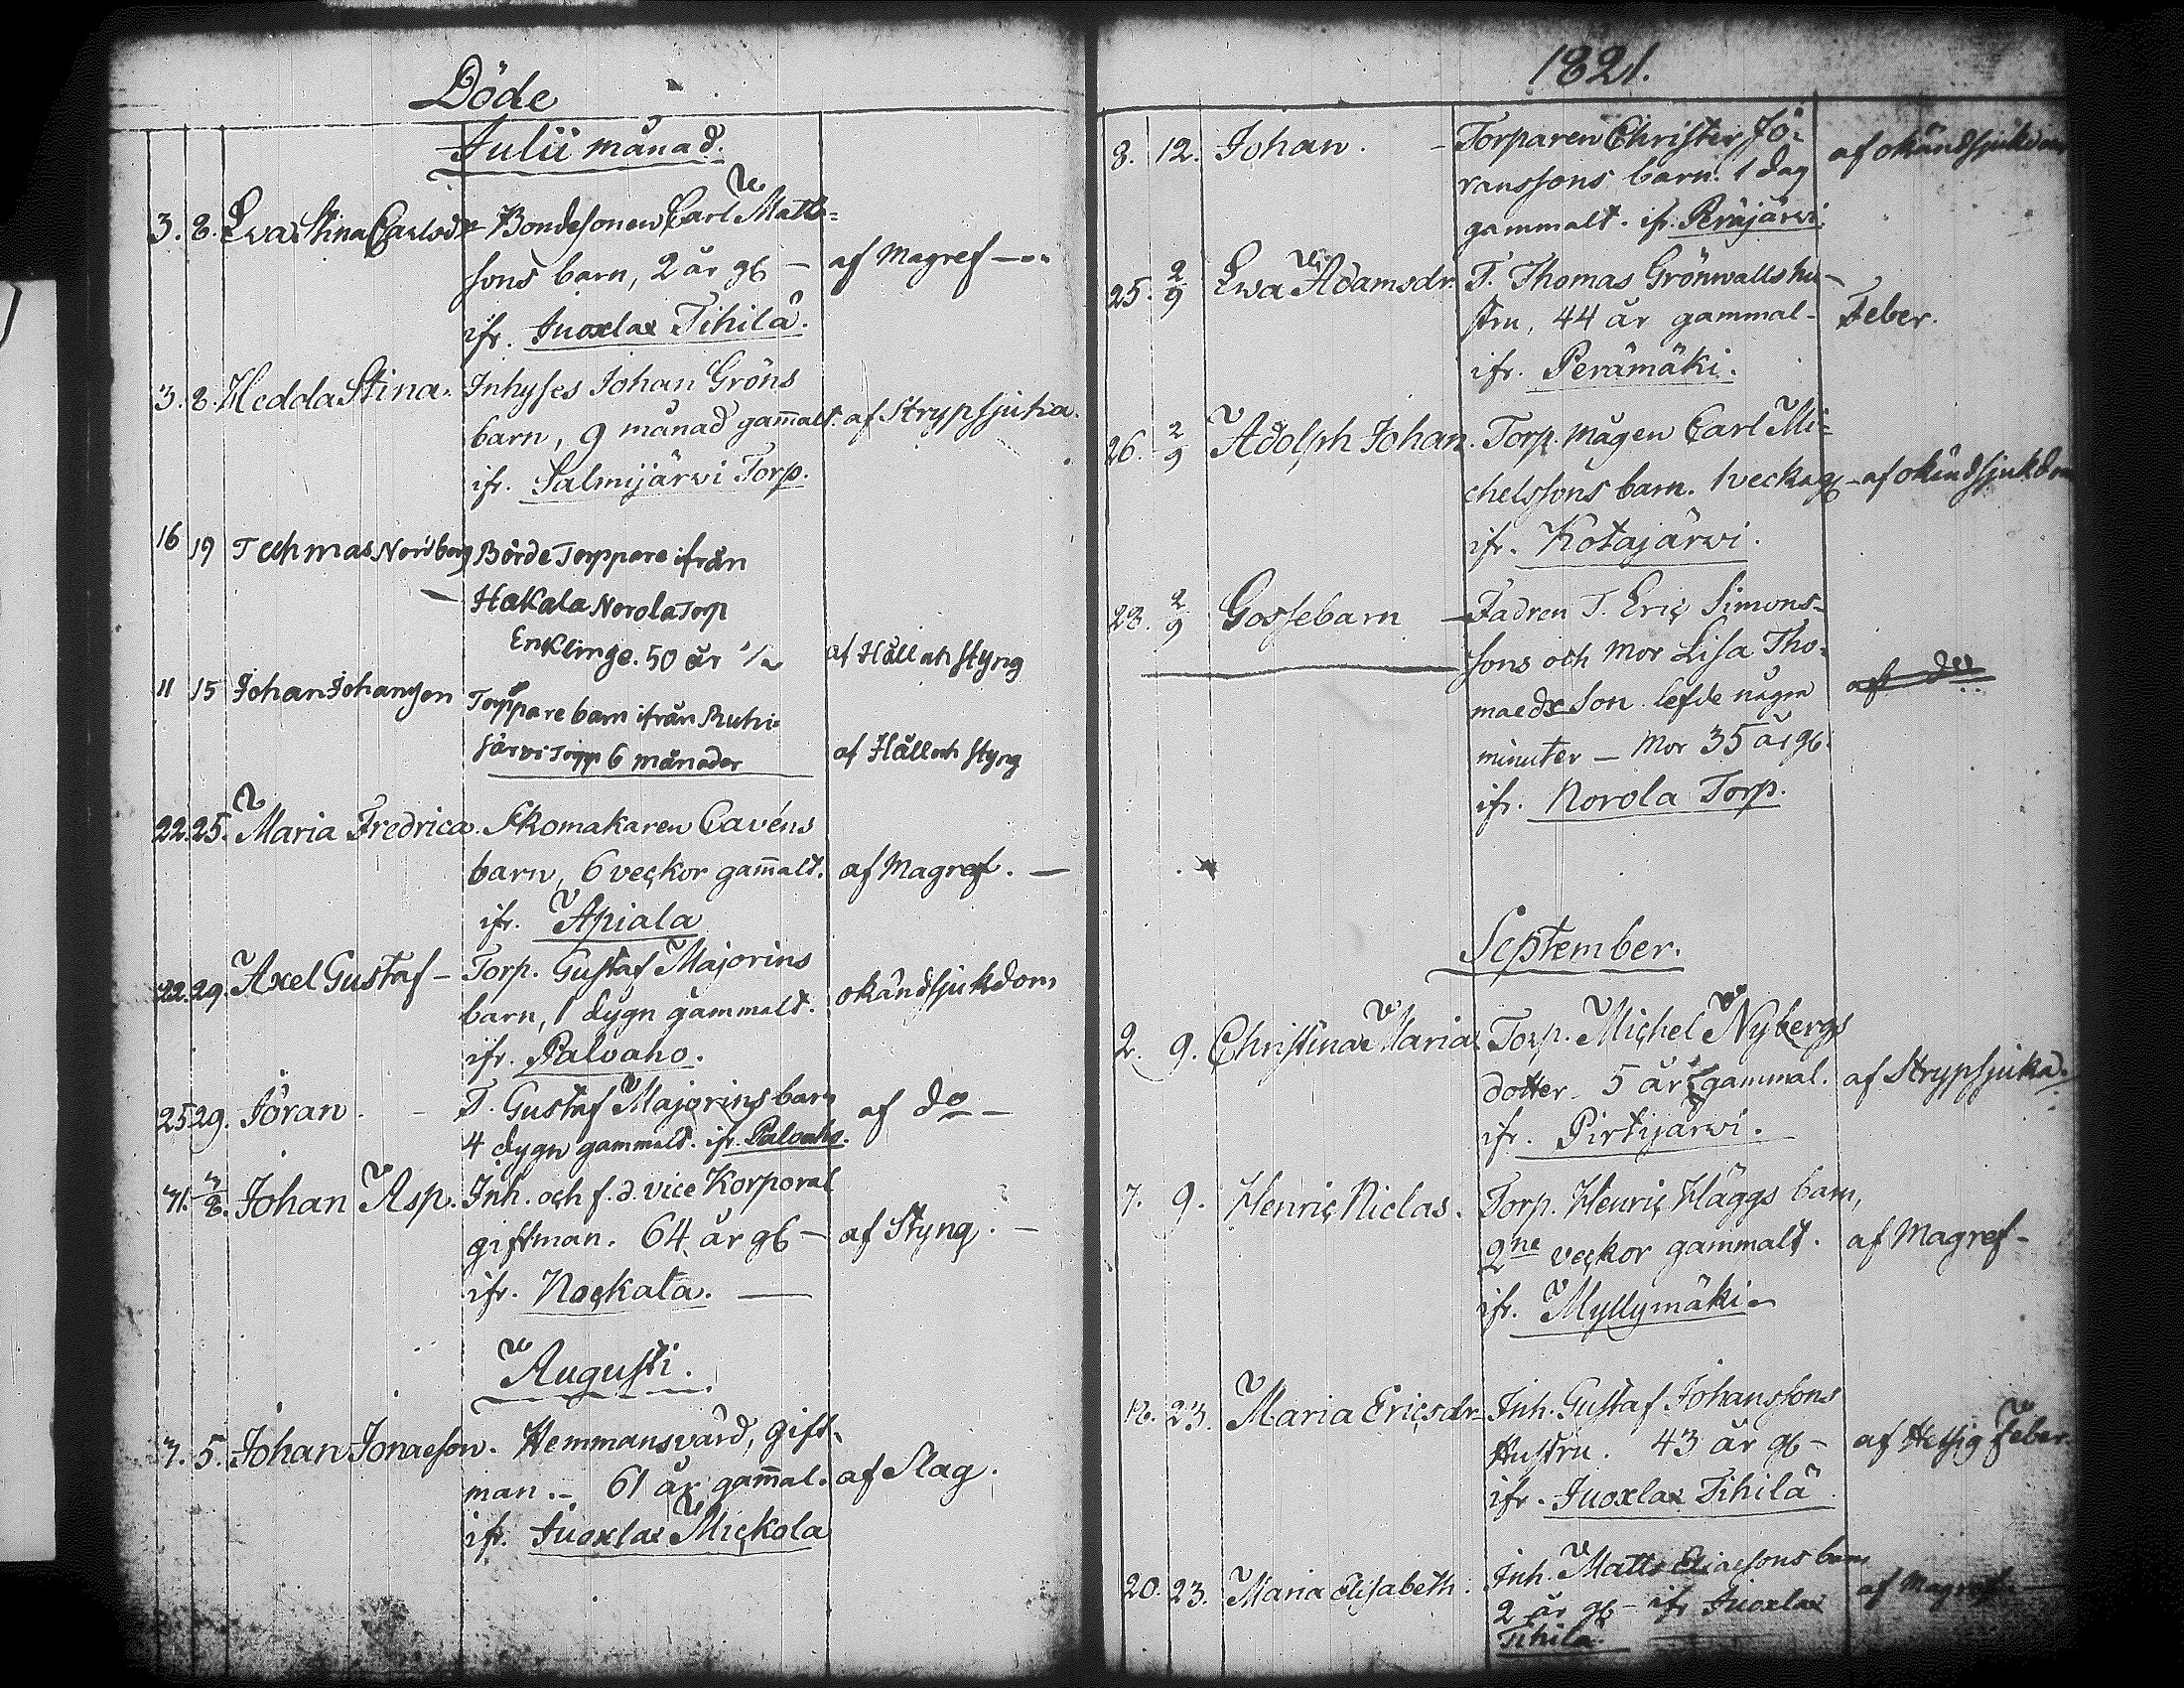 Döde
Julii månad.
3. 8. Ewa Stina Carlsdr Bondesonen Carl Matts=
sons barn, 2 år gl — af Magref —
ifr. Juoxlax Tihilä.
3. 8. Hedda Stina. Inhyses Johan Gröns
barn, 9 månad gam̄alt. af Strypsjuka.
ifr. Salmijärvi Torp.
16 19 Nordberg Börde Torppare ifrån
Hakala Norola Torp
Enklinge. 50 år 1/2 af Håll och Styng
11 15 Johan Johansson Torppare barn ifrån Ruhi=
järvi Torpp 6 månader af Håll och Styng
22. 25. Maria Fredrica. Skomakaren Cavéns
barn, 6 veckor gam̄alt. af Magref. —
ifr. Apiala
22. 29. Axel Gustaf — Torp. Gustaf Majorins
barn, 1 dygn gammalt. okänd sjukdom
ifr. Palvaho.
25 29. Jöran. — T. Gustaf Majorins barn
4 dygn gammalt. ifr. Palvaho. af do —
31. 3/8. Johan Asp. Inh. och f. d. vice Korporal
giftman. 64 år gl — af Styng. —
ifr. Nockata. —
Augusti.
3. 5. Johan Jonaeson. Hemmansvärd, gift-
man. — 61 år gam̄al. af Slag.
ifr. Juoxlax Mickola
1821.
8. 12. Johan. — Torparen Christer Jö=
ranssons barn. 1 dag af okänd sjukdom
gammalt. ifr. Peräjärvi.
25. 2/9 Ewa Adamsdr. T. Thomas Grönwalls hu-
stru, 44 år gammal- Feber.
ifr. Perämäki.
26. 2/9 Adolph Johan. Torp. mågen Carl Mi=
chelssons barn. 1 vecka gl — af okänd sjukdom
ifr. Kotajärvi.
28. 2/9 Gossebarn — Fadren T. Eric Simons-
sons och Mor Lisa Tho-
maedr Son lefde några af do
minuter — Mor 35 år gl.
ifr. Norola Torp.
September.
2. 9. Christina Maria. Torp. Michel Nybergs
dotter 5 år gammal. af Strypsjuka.
ifr. Pirtijärvi.
7. 9. Henric Niclas. Torp. Henric Häggs barn,
2ne veckor gammalt. af Magref —
ifr. Myllymäki
18. 23. Maria Ericsdr Inh. Gustaf Johanssons
Hustru. 43 år gl — af Hetsig Feber.
ifr. Juoxlax Tihilä
20. 23. Maria Elisabeth. Inh. Matts Eliaesons barn
2 år gl — ifr Juoxlax af Magref
Tihilä.